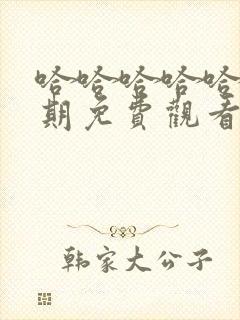 哈哈哈哈哈
期免費觀看
韩家大公子